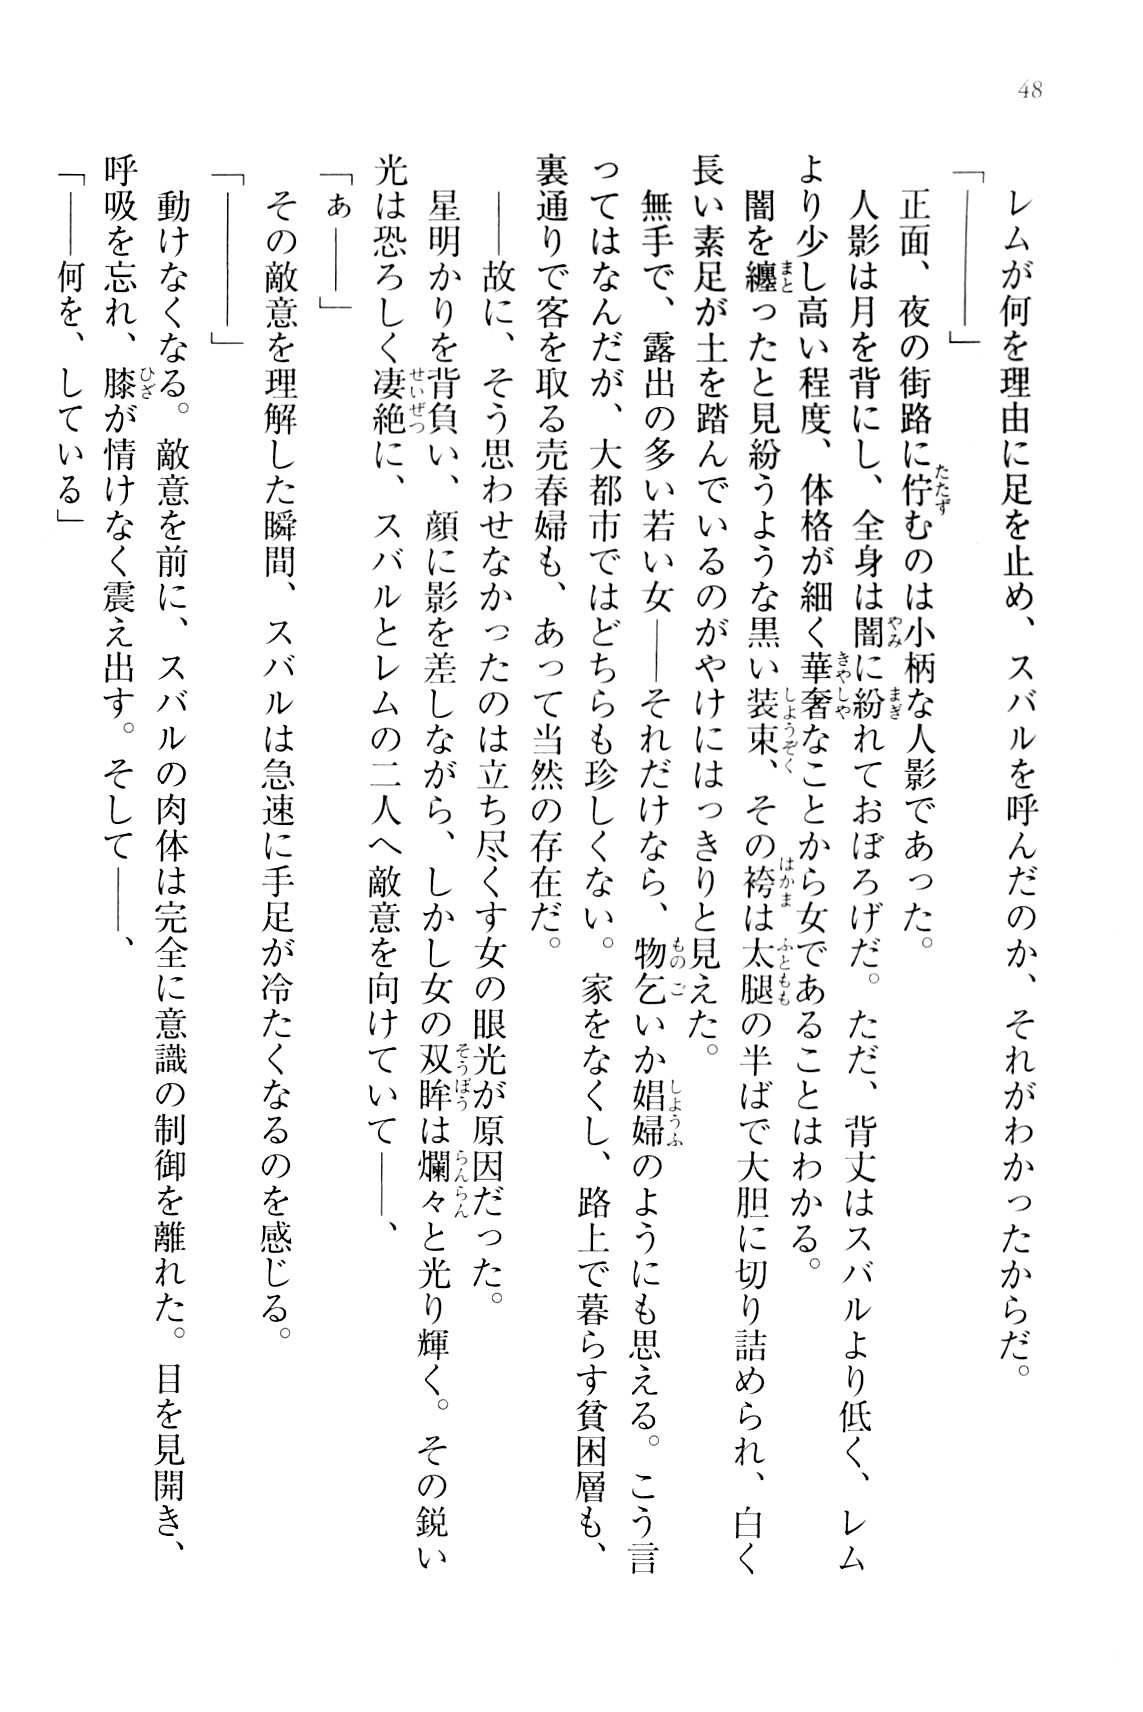 48
レムが何を理由に足を止め、スバルを呼んだのか、それがわかったからだ。
「――――」
正面、夜の街路に佇むのは小柄な人影であった。
人影は月を背にし、全身は闇に紛れておぼろげだ。ただ、背丈はスバルより低く、レム
より少し高い程度、体格が細く華奢なことから女であることはわかる。
闇を纏ったと見紛うような黒い装束、その袴は太腿の半ばで大胆に切り詰められ、白く
長い素足が土を踏んでいるのがやけにはっきりと見えた。
無手で、露出の多い若い女――それだけなら、物乞いか娼婦のようにも思える。こう言
ってはなんだが、大都市ではどちらも珍しくない。家をなくし、路上で暮らす貧困層も、
裏通りで客を取る売春婦も、あって当然の存在だ。
――故に、そう思わせなかったのは立ち尽くす女の眼光が原因だった。
星明かりを背負い、顔に影を差しながら、しかし女の双眸は爛々と光り輝く。その鋭い
光は恐ろしく凄絶に、スバルとレムの二人へ敵意を向けていて――、
「ぁ――」
その敵意を理解した瞬間、スバルは急速に手足が冷たくなるのを感じる。
「――――」
動けなくなる。敵意を前に、スバルの肉体は完全に意識の制御を離れた。目を見開き、
呼吸を忘れ、膝が情けなく震え出す。そして――、
「――何を、している」